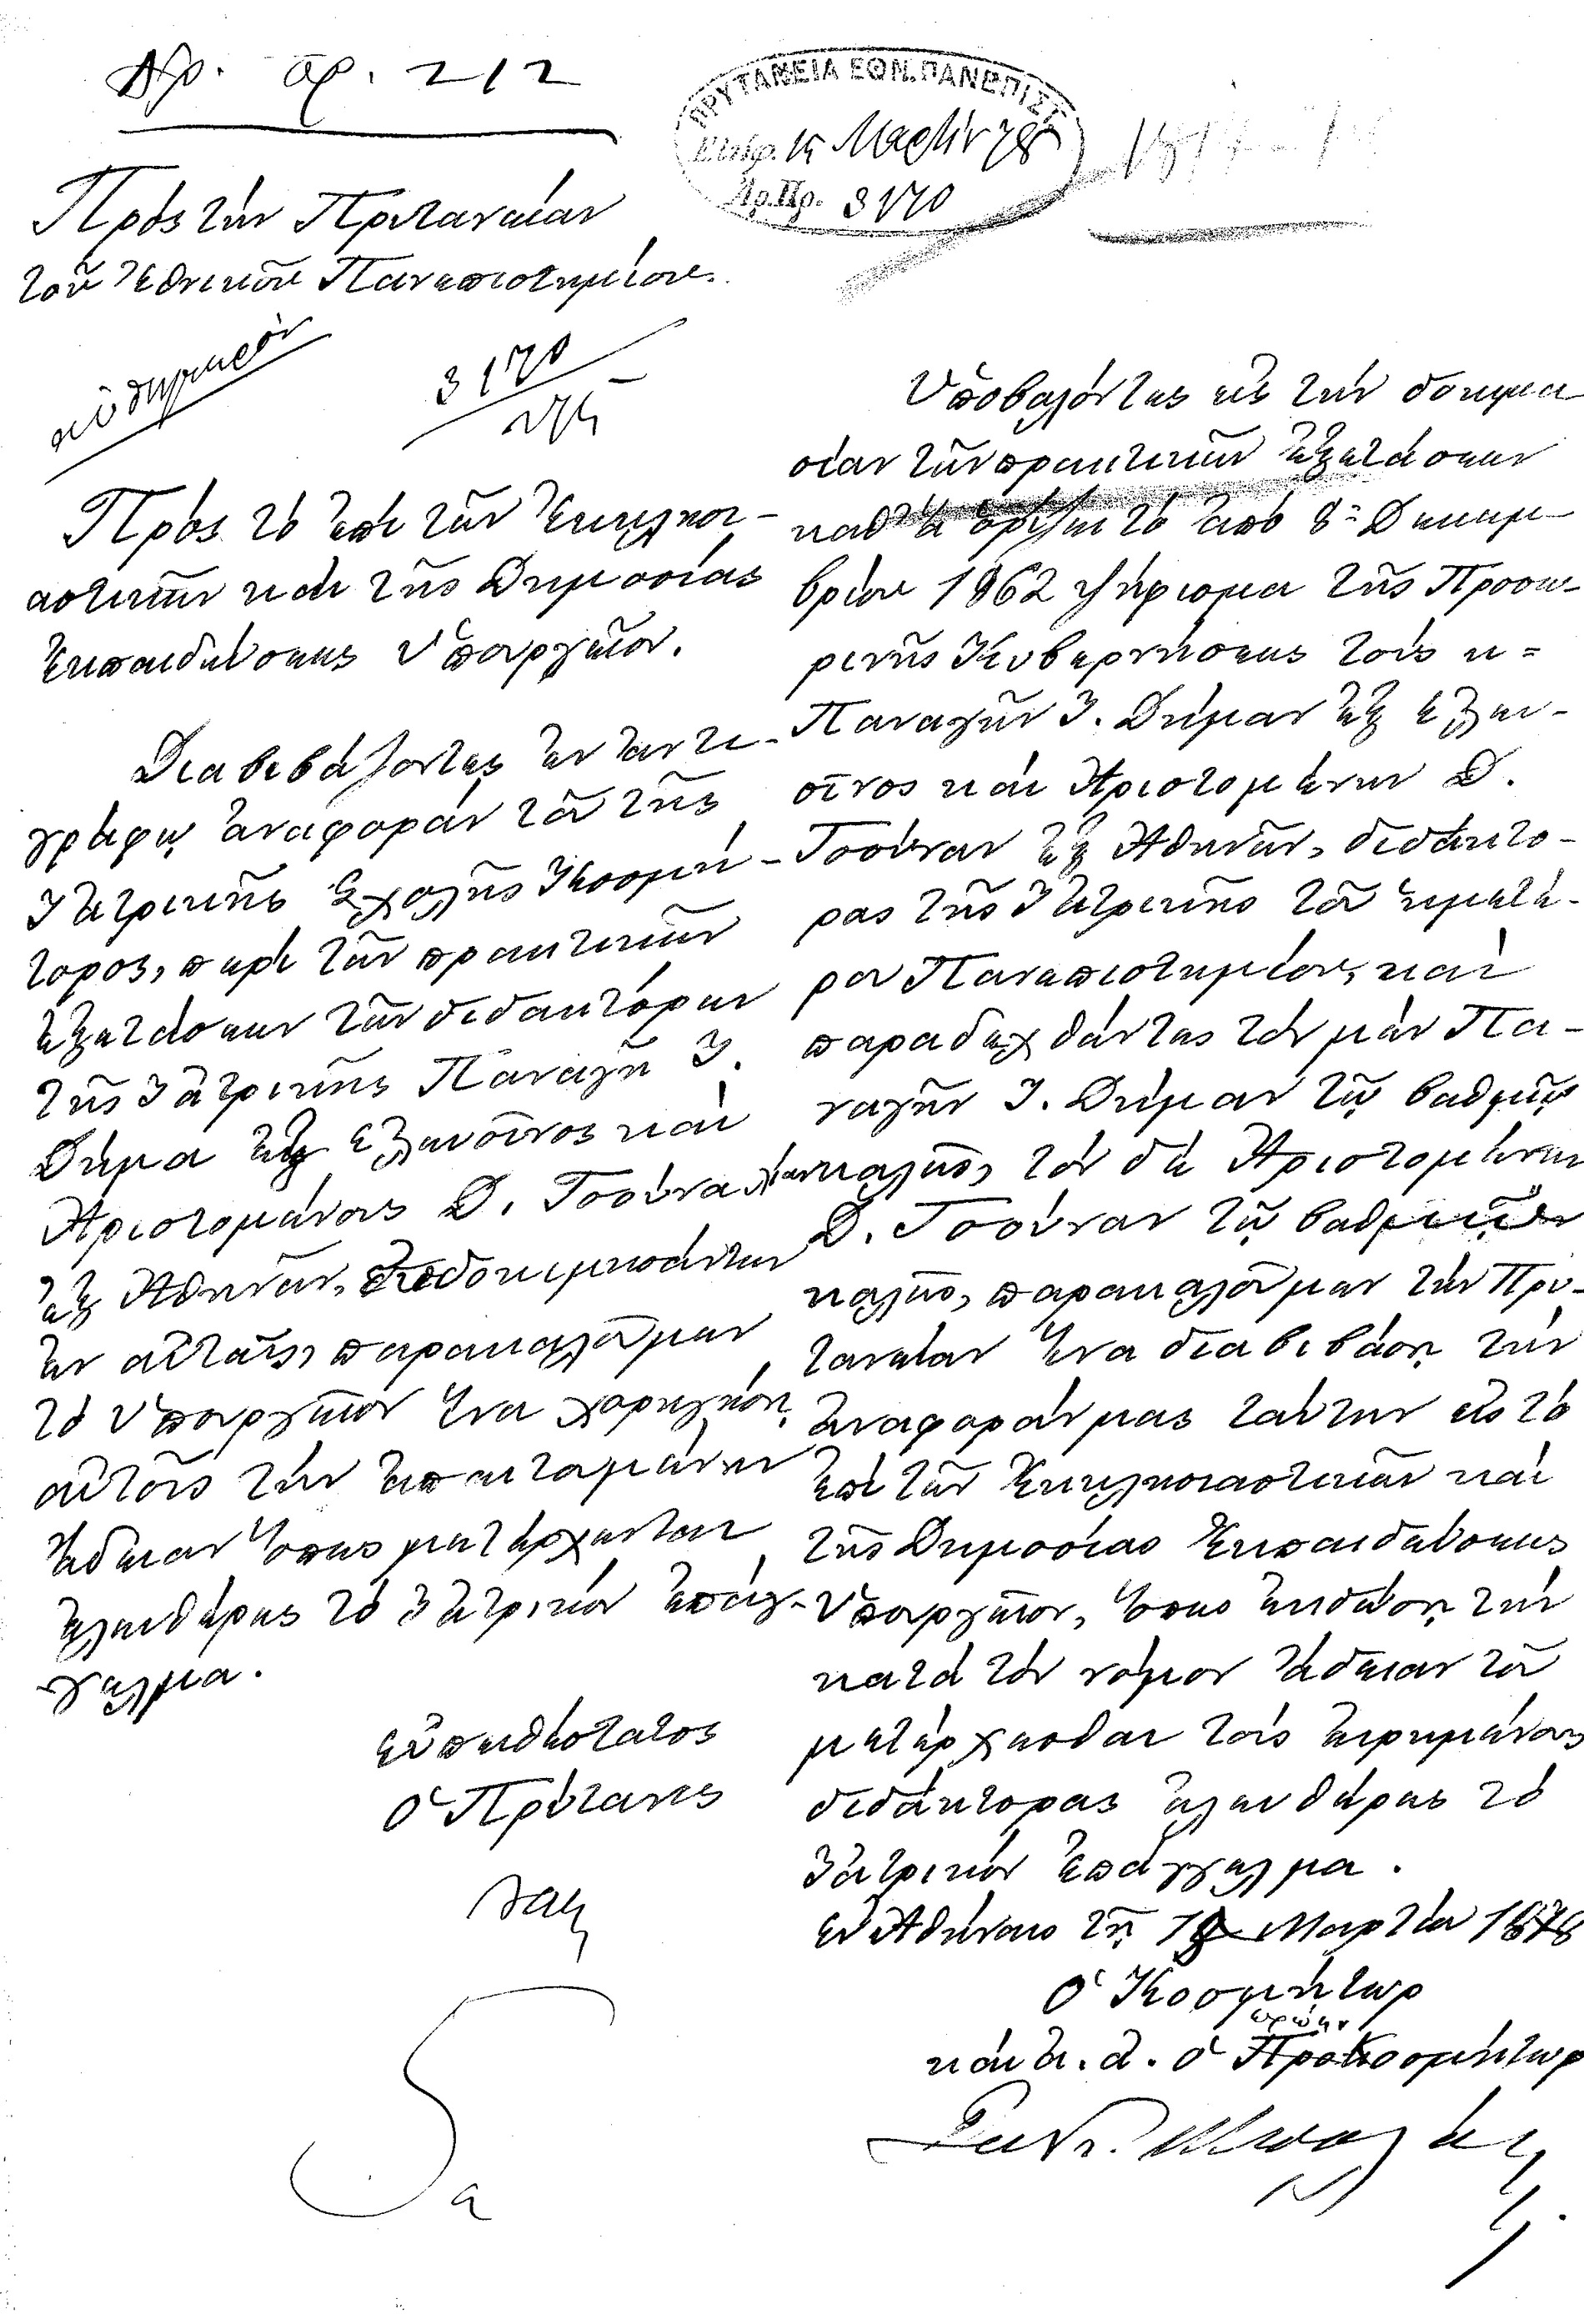 Ἀρ. πρ. 212
ΠΡΥΤΑΝΕΙΑ ΕΘΝ. ΠΑΝΕΠΙΣΤ.
15 Μαρτίου 78
Ἀρ. Πρ. 3170
Πρὸς τὴν Πρυτανείαν
τοῦ Ἐθνικοῦ Πανεπιστημίου.
αὐθημερὸν
3170
Πρὸς τὸ ἐπὶ τῶν Ἐκκλησι-
αστικῶν καὶ τῆς Δημοσίας
Ἐκπαιδεύσεως Ὑπουργεῖον.
Διαβιβάζοντες ἐν ἀντι-
γράφῳ ἀναφορὰν τοῦ τῆς
Ἰατρικῆς Σχολῆς Κοσμή-
τορος, περὶ τῶν πρακτικῶν
ἐξετάσεων τῶν διδακτόρων
τῆς Ἰατρικῆς Παναγῆ Ἰ.
Δήμα ἐξ Ἐλευσῖνος καὶ
Ἀριστομένους Δ. Τσούνα
ἐξ Ἀθηνῶν, εὐδοκιμησάντων
ἐν αὐταῖς, παρακαλοῦμεν
τὸ Ὑπουργεῖον ἵνα χορηγήσῃ
αὐτοῖς τὴν ἀπαιτουμένην
ἄδειαν ὅπως μετέρχωνται
ἐλευθέρως τὸ Ἰατρικὸν ἐπάγ-
γελμα.
εὐπειθέστατος
ὁ Πρύτανις
Ὑποβαλόντες εἰς τὴν δοκιμα-
σίαν τῶν πρακτικῶν ἐξετάσεων
καθ' ἃ ὁρίζει τὸ ἀπὸ 8 Δεκεμ-
βρίου 1862 ψήφισμα τῆς Προσω-
ρινῆς Κυβερνήσεως τοὺς κ=
Παναγῆν Ἰ. Δήμαν ἐξ Ἐλευ-
σῖνος καὶ Ἀριστομένην Δ.
Τσούναν ἐξ Ἀθηνῶν, διδάκτο-
ρας τῆς Ἰατρικῆς τοῦ ἡμετέ-
ρου Πανεπιστημίου, καὶ
παραδεχθέντες τὸν μὲν Πα-
ναγῆν Ἰ. Δήμαν τῷ βαθμῷ
καλῶς, τὸν δὲ Ἀριστομένην
Δ. Τσούναν τῷ βαθμῷ
καλῶς, παρακαλοῦμεν τὴν Πρυ-
τανείαν ἵνα διαβιβάσῃ τὴν
ἀναφοράν μας ταύτην εἰς τὸ
ἐπὶ τῶν Ἐκκλησιαστικῶν καὶ
τῆς Δημοσίας Ἐκπαιδεύσεως
Ὑπουργεῖον, ὅπως ἐκδώσῃ τὴν
κατὰ τὸν νόμον ἄδειαν τοῦ
μετέρχεσθαι τοὺς εἰρημένους
διδάκτορας ἐλευθέρως τὸ
Ἰατρικὸν ἐπάγγελμα.
ἐν Ἀθήναις τῇ Μαρτίου 1878
ὁ Κοσμήτωρ
πρώην
κ. α. α. ὁ Προκοσμήτωρ